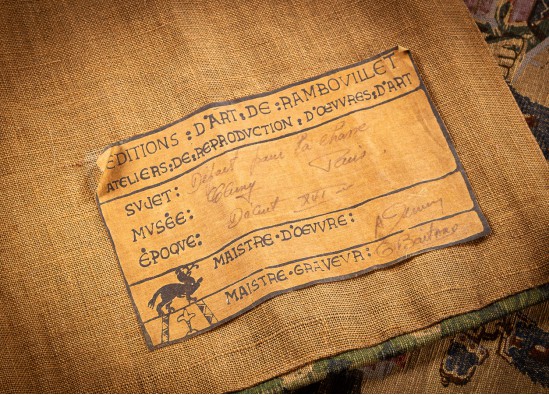 EDITIONS : D'ART : DE : RAMBOVILLET
ATELIERS : DE : REPRODUCTION : D'ŒUVRES : D'ART
SVJET : Départ pour la chasse
MVSÉE : Cluny Paris.
ÉPOQVE : Début XVI
MAISTRE · D'ŒUVRE :
MAISTRE · GRAVEVR :